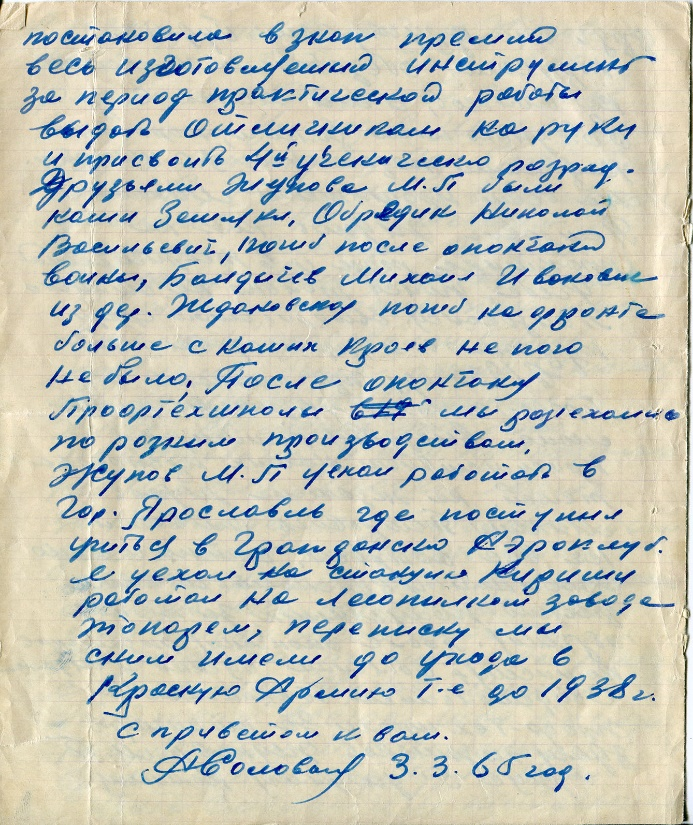 постановила взнак премий
весь изготовленный инструмент
за период практической работы
выдать отличникам на руки
и присвоить 4й ученическо разряд.
Друзьями Жупова М.П были
наши Земляки, Обрядин Николай
Васильевич, погиб после окончаний
войны, Балдичев Михаил Иванович
из дер. Ждановская погиб на фронте
больше с наших краев не кого
не было, После окончании
Профтехшколы мы разехались
по разным производствам,
Жупов М.П уехал работать в
гор. Ярославль где поступил
учиться в Гражданско Аэроклуб.
я уехал на станцию Кириши
работал на Лесопилком заводе
токарем, переписку мы
сним имели до ухода в
Красную Армию т-е до 1938 г.
С приветом к вам.
3. 3. 65 год.